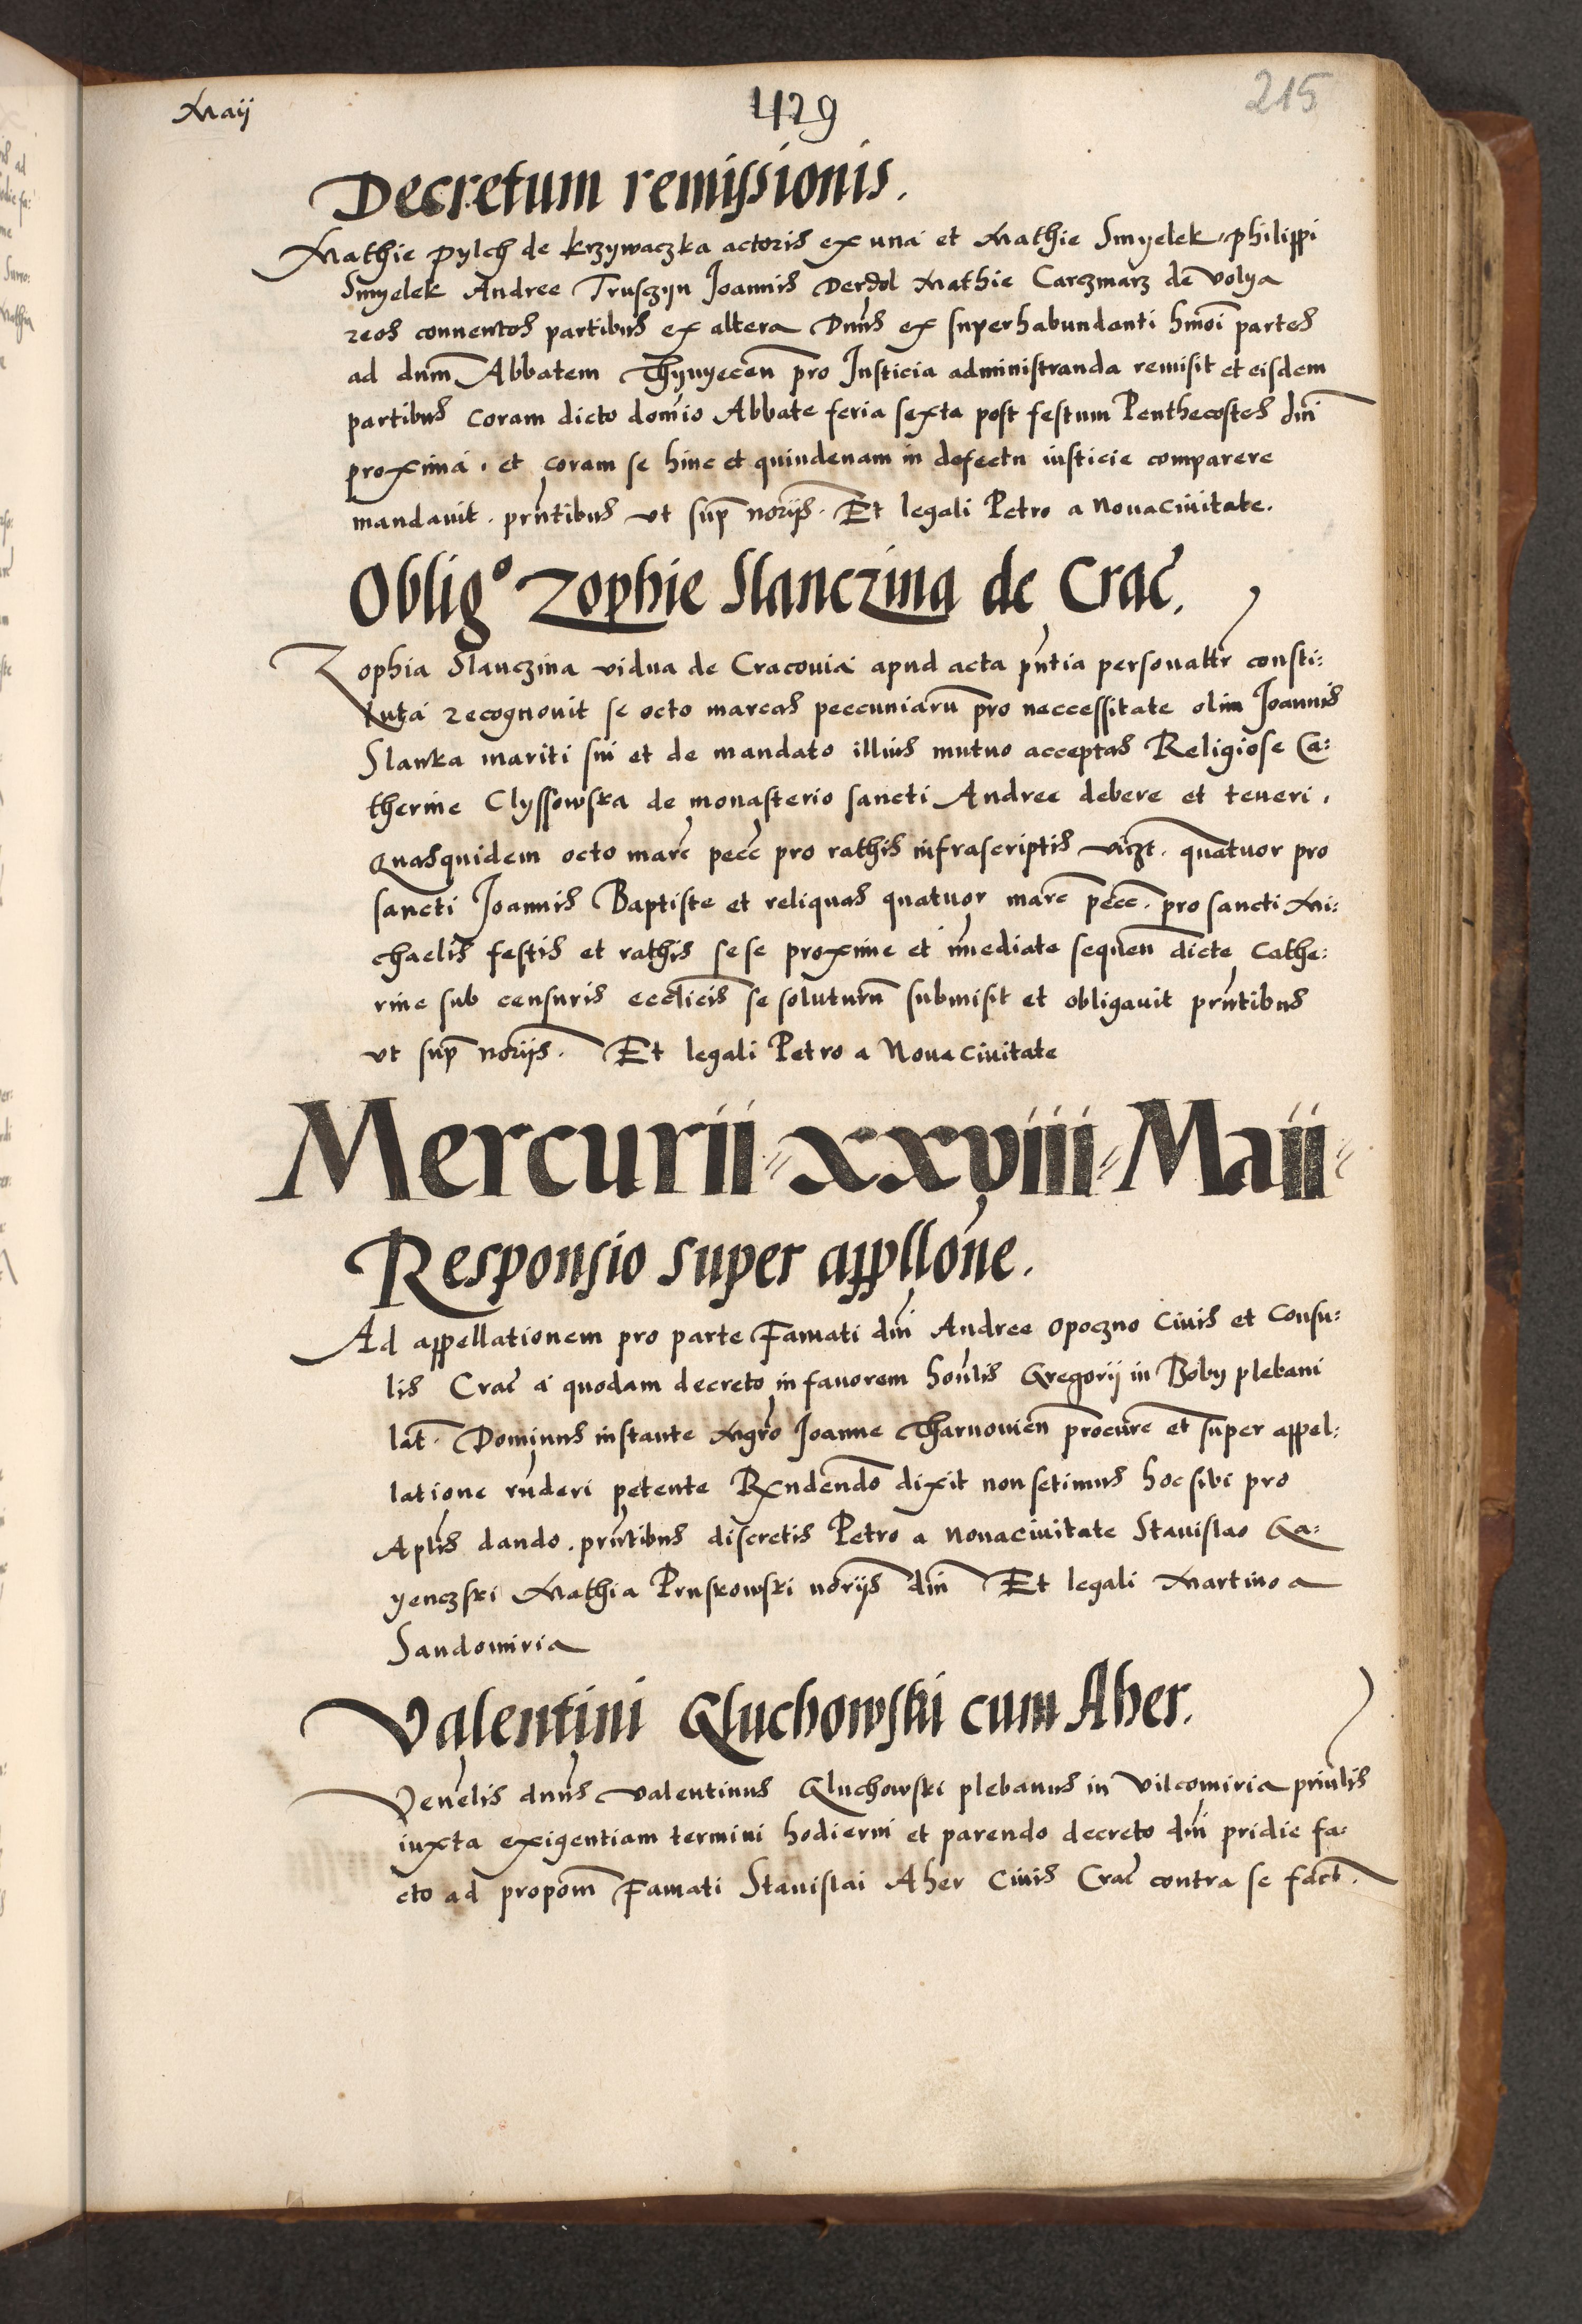 Maii
429
215
Decretum remissionis.
Mathie Pylch de Krzywaczka actoris ex una et Mathie Smyelek, philippi
Smyelek Andree Trusczyn Joannis Derdol Mathie Carczmarz de Volya
reos conventos partibus ex altera Dnus ex superhabundanti hmoi partes
ad dnm Abbatem Thynyecen pro Justicia administranda remisit et eisdem
partibus coram dicto domio Abbate feria sexta post festum Penthecostes dni
proxima. et coram se hinc et quindenam in defectu iusticie comparere
mandavit. prntibus ut sup noriis. Et legali Petro a Novacivitate.
Oblig° Zophie Slanczina de Crac.
Zophia Slanczina vidua de Cracovia apud acta pntia personaltr consti:
tuta recognovit se octo marcas peccuniaru pro neccessitate olim Joannis
Slanka mariti sui et de mandato illius mutuo acceptas Religiose Ca:
therine Clyssowska de monasterio sancti Andree debere et teneri.
Quasquidem octo marc pecc pro rathis infrascriptis vizt. quatuor pro
sancti Joannis Baptiste et reliquas quatuor marc pecc. pro sancti Mi:
chaelis festis et rathis sese proxime et imediate sequen dicte Cathe:
rine sub censuris ecclicis se soluturu submisit et obligavit prntibus
ut sup noriis. Et legali Petro a Nova civitate
Mercurii xxviii Maii
Responsio super appllone.
Ad appellationem pro parte Famati dni Andree Opoczno Civis et Consu:
lis Crac a quodam decreto in favorem honlis Gregorij in Boby plebani
lat. Dominus instante Mgro Joanne Tharnovien procure et super appel:
latione rnderi petente Rxndendo dixit non setimus hoc sibi pro
Aplis dando. prntibus discretis Petro a novacivitate Stanislao Ga:
yenczski Mathia Pruskowski noriis dni Et legali Martino a
Sandomiria
Valentini Gluchowski cum Aher.
Venelis dnus Valentinus Gluchowski plebanus in Vilcomiria prinlis
iuxta exigentiam termini hodierni et parendo decreto dni pridie fa:
cto ad propom Famati Stanislai Aher Civis Crac contra se fact.